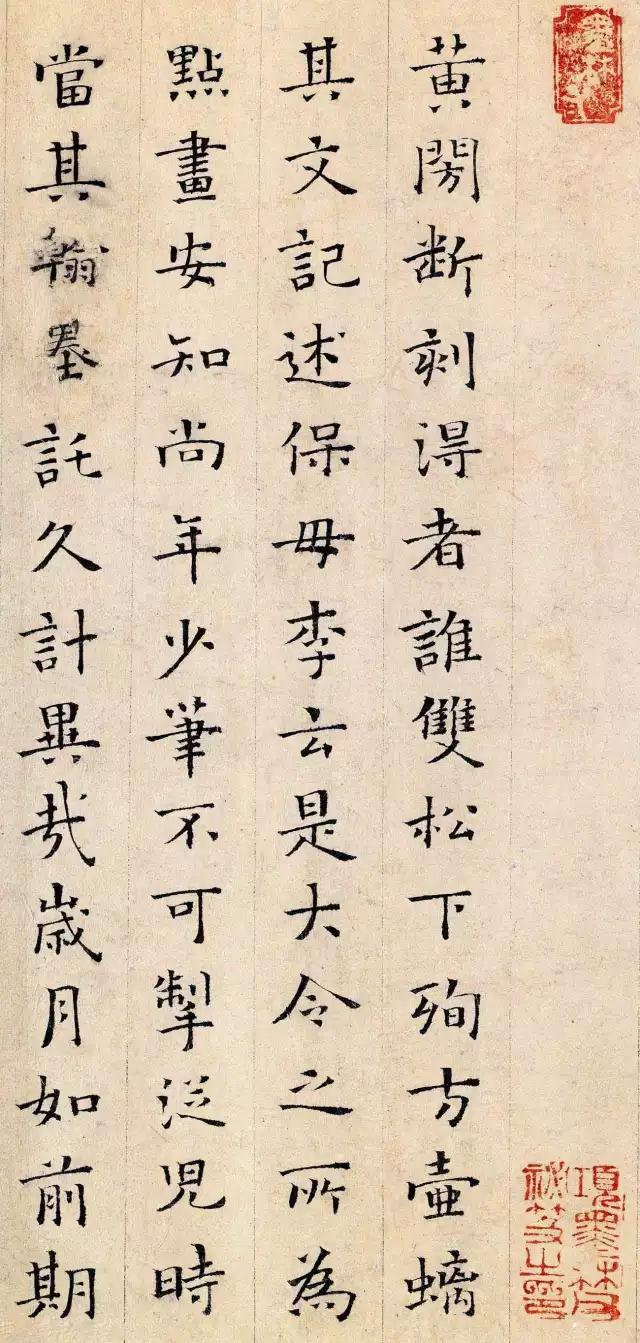 黃閍断刻淂者誰雙松下殉方壷螭
其文記述保母李云是大令之所為
點畫安知尚年少筆不可掣從児時
當其翰墨託久計異㢤歲月如前期